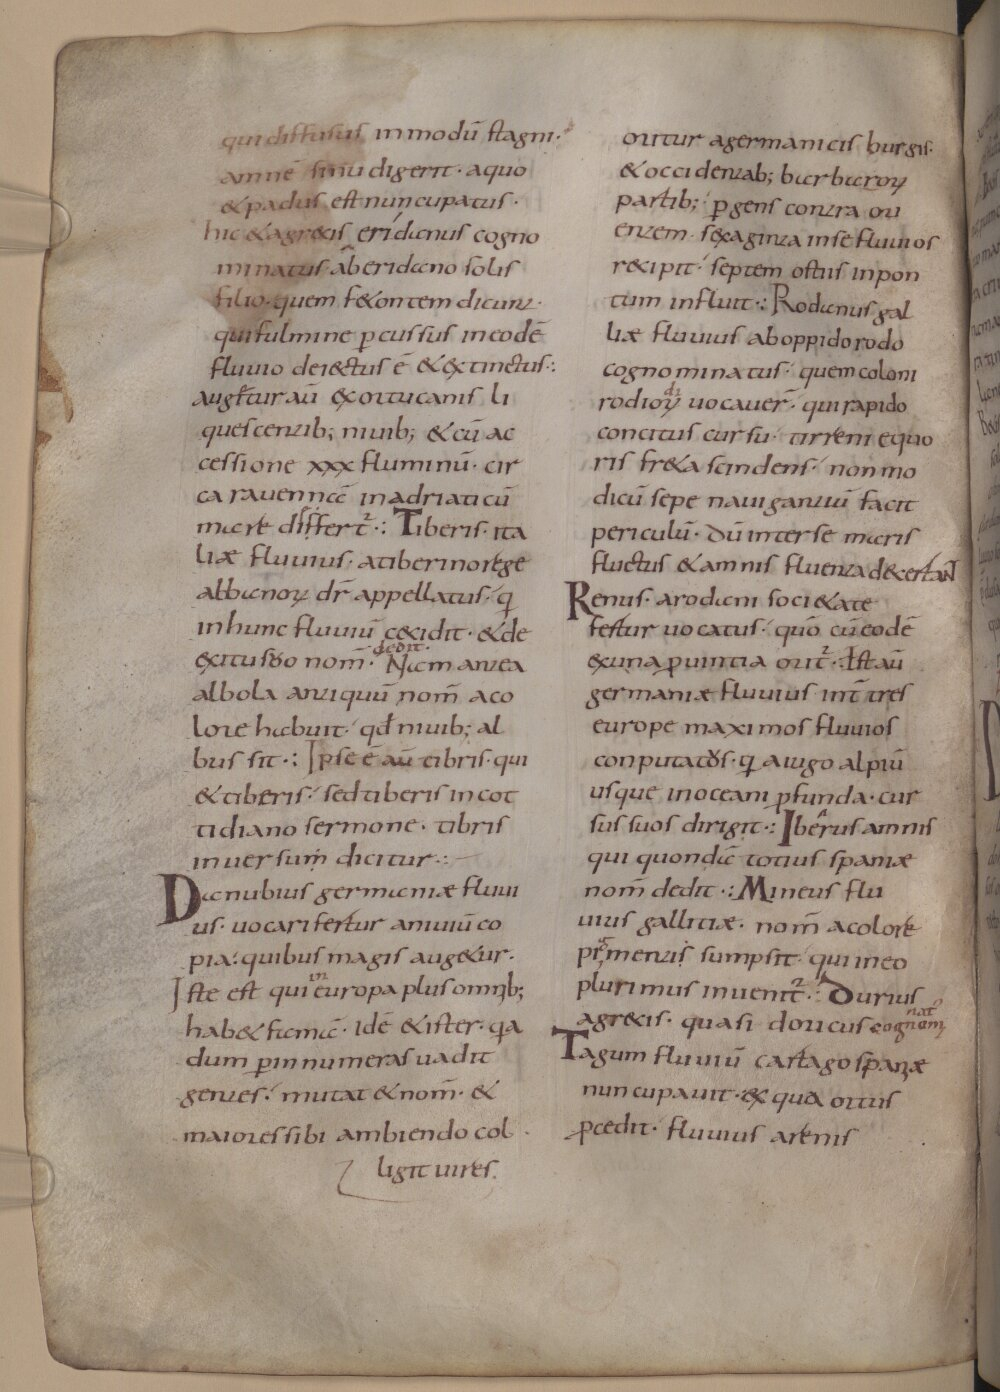 qui diffusus in modū stagni·
amnē sinu digerit· a quo
& padus est nuncupatus·
hic & agrecis eridanus cogno
minatus ab eridano solis
filio· quem f&ontem dicunt·
qui fulmine pcussus in eodē
fluuio deiectus ē & extinctus·:
augetur aū ex ortu canis li
quescentib; niuib; & cū ac
cessione xxx fluminū· cir
ca rauennā in adriaticū
mare differt᷑·: Tiberis· ita
liæ fluuius· a tiberino rege
albanoꝝ dr̄ appellatus· q
in hunc fluuiū cecidit· & de
exitu suo nom̄· dedit· Nam antea
albola antiquū nom̄ a co
lore habuit· qđ niuib; al
bus sit·: Ipse ē aū tibris· qui
& tiberis· sed tiberis in cot
tidiano sermone· tibris
in uersum dicitur·:
Danubius germaniæ fluui
us· uocari fertur a niuiū co
pia· quibus magis aug&ur·
Iste est qui in europa plus omnib;
hab& famā· Idē & ister· qa
dum p innumeras uadit
gentes· mutat & nom̄· &
maiores sibi ambiendo col
ligit uires·
oritur a germanicis burgis·
& occidentab; barbaroꝝ
partib; pgens contra ori
entem· sexaginta in se fluuios
recipit· septem ostiis in pon
tum influit·: Rodanus gal
liæ fluuius ab oppido rodo
cognominatus· quem coloni
rodioꝝ uocauer̄· qui rapido
concitus cursu· tirreni equo
ris freta scindens· non mo
dicū sepe nauigantiū facit
periculū· dū inter se maris
fluctus & amnis fluenta decertant
Renus· a rodani societate
fertur uocatus· quō cū eodē
ex una puintia orit᷑·: Est aū
germaniæ fluuius int̄ tres
europe maximos fluuios
conputatus· q a iugo alpiū
usque in oceani pfunda· cur
sus suos dirigit·: Iberus amnis
qui quondā totius spaniæ
nom̄ dedit·: Mineus flu
uius gallitiæ· nom̄ a colore
pigmentis sumpsit· qui in eo
plurimus inuenit᷑·: Durius
a grecis· quasi doricus cognom̄ nat᷑
Tagum fluuiū cartago spaniæ
nuncupauit· ex qua ortus
pcedit· fluuius arenis